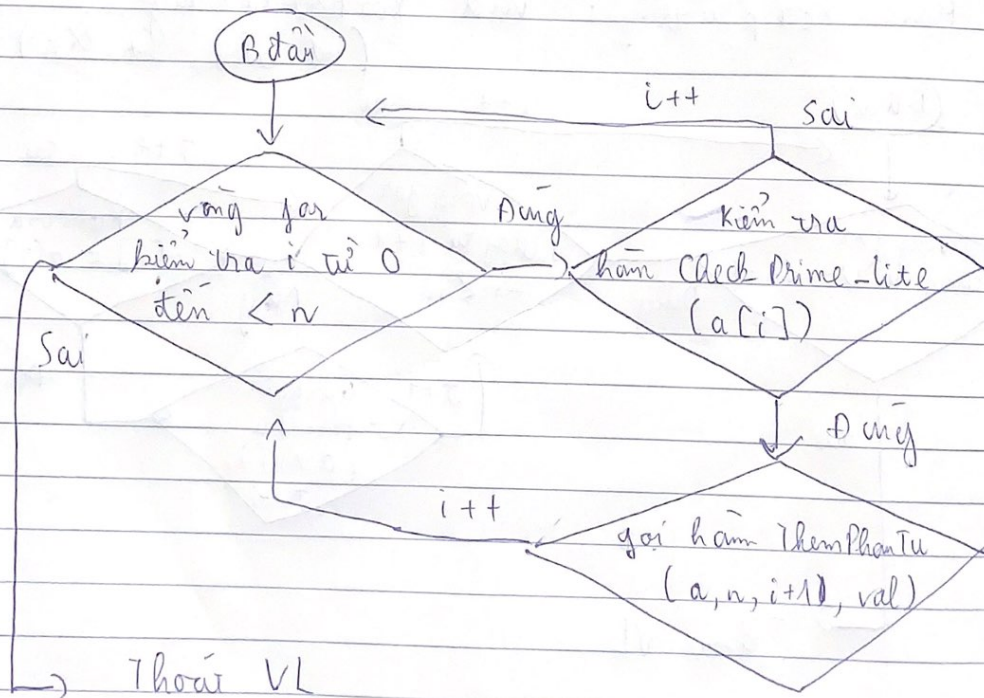 B đầu
i++
Sai
vòng for
kiểm tra i từ 0
đến < n
Đúng
Kiểm tra
hàm Check Prime_lite
(a[i])
Sai
Đúng
i++
gọi hàm ThemPhanTu
(a, n, i+1), val)
Thoát VL